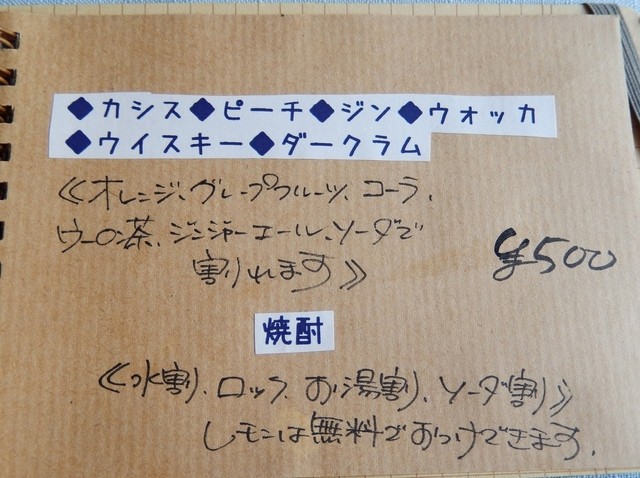 ◆カシス◆ピーチ◆ジン◆ウォッカ
◆ウイスキー◆ダークラム
《オレンジ、グレープフルーツ、コーラ、
ウーロン茶、ジンジャーエール、ソーダで
割れます》
¥500
焼酎
《水割、ロック、お湯割、ソーダ割》
レモンは無料でおつけできます。